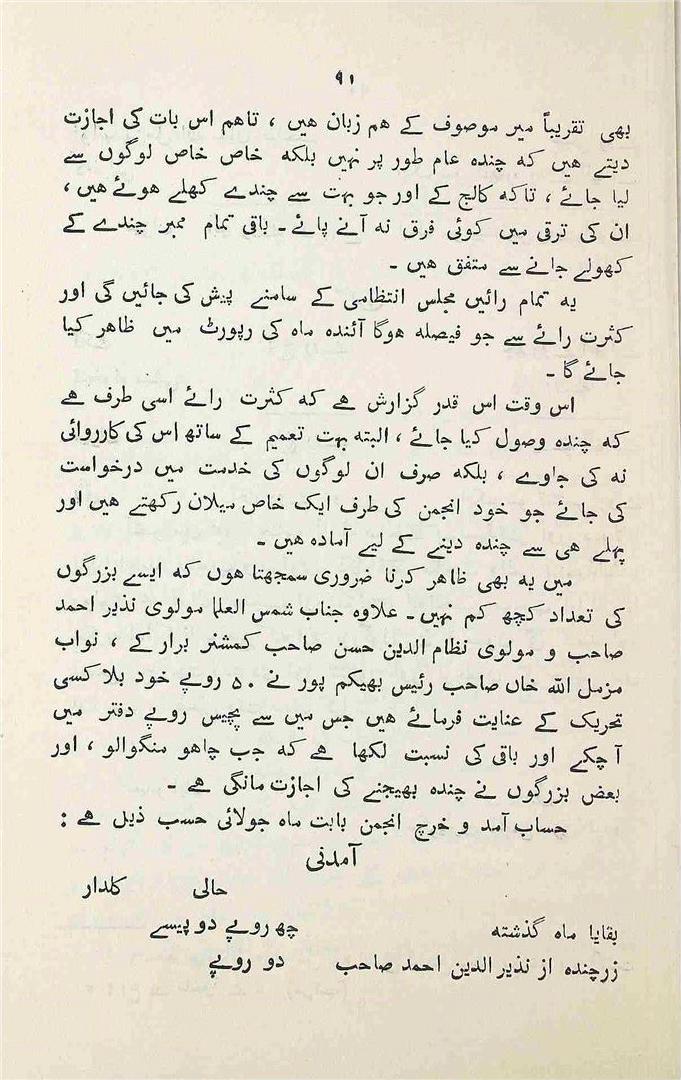 ۹۱
بھی تقریباً میر موصوف کے ہم زبان ہیں ، تاہم اس بات کی اجازت
دیتے ہیں کہ چندہ عام طور پر نہیں بلکہ خاص خاص لوگوں سے
لیا جائے ، تاکہ کالج کے اور جو بہت سے چندے کھلے ہوئے ہیں ،
ان کی ترقی میں کوئی فرق نہ آنے پائے ۔ باقی تمام ممبر چندے کے
کھولے جانے سے متفق ہیں ۔
یہ تمام رائیں مجلس انتظامی کے سامنے پیش کی جائیں گی اور
کثرت رائے سے جو فیصلہ ہوگا آئندہ ماہ کی رپورٹ میں ظاہر کیا
جائے گا ۔
اس وقت اس قدر گزارش ہے کہ کثرت رائے اسی طرف ہے
کہ چندہ وصول کیا جائے ، البتہ بہت تعمیم کے ساتھ اس کی کارروائی
نہ کی جاوے ، بلکہ صرف ان لوگوں کی خدمت میں درخواست
کی جائے جو خود انجمن کی طرف ایک خاص میلان رکھتے ہیں اور
پہلے ہی سے چندہ دینے کے لیے آمادہ ہیں ۔
میں یہ بھی ظاہر کرنا ضروری سمجھتا ہوں کہ ایسے بزرگوں
کی تعداد کچھ کم نہیں ۔ علاوہ جناب شمس العلما مولوی نذیر احمد
صاحب و مولوی نظام الدین حسن صاحب کمشنر برار کے ، نواب
مزمل اللہ خاں صاحب رئیس بھیکم پور نے ۵۰ روپے خود بلا کسی
تحریک کے عنایت فرمائے ہیں جس میں سے پچیس روپے دفتر میں
آ چکے اور باقی کی نسبت لکھا ہے کہ جب چاہو منگوالو ، اور
بعض بزرگوں نے چندہ بھیجنے کی اجازت مانگی ہے ۔
حساب آمد و خرچ انجمن بابت ماہ جولائی حسب ذیل ہے :
آمدنی
حالی کلدار
بقایا ماہ گذشتہ چھ روپے دو پیسے
زر چندہ از نذیر الدین احمد صاحب دو روپے